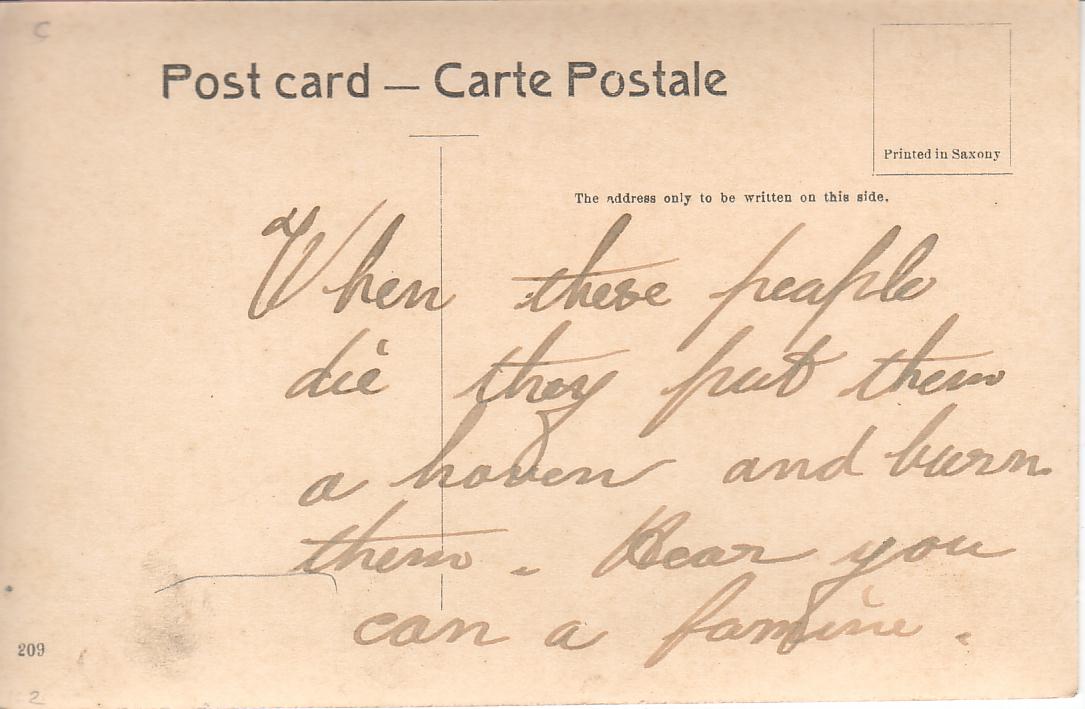 c
Post card — Carte Postale
Printed in Saxony
The address only to be written on this side.
When these people
die they put them
a hoven and burn
them. Hear you
can a famine.
209
2